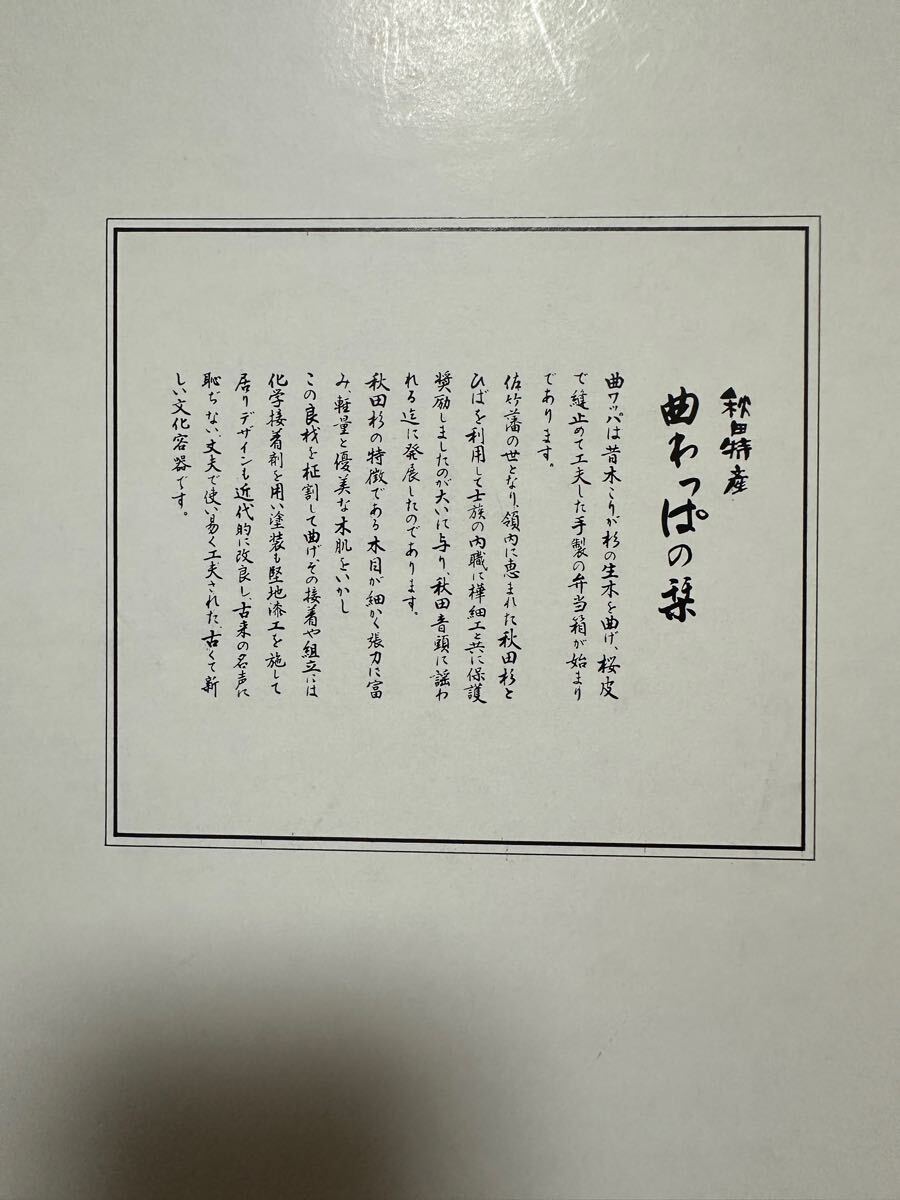 秋田特産
曲わっぱの栞
曲ワッパは昔木こりが杉の生木を曲げ、桜皮
で縫止めて工夫した手製の弁当箱が始まり
であります。
佐竹藩の世となり、領内に恵まれた秋田杉と
ひばを利用して士族の内職に樺細工と共に保護
奨励しましたのが大いに与り、秋田音頭に謡わ
れる迄に発展したのであります。
秋田杉の特徴である木目が細かく張力に富
み、軽量と優美な木肌をいかし
この良材を柾割して曲げ、その接着や組立には
化学接着剤を用い塗装も堅地漆工を施して
居りデザインも近代的に改良し、古来の名声に
恥ぢない丈夫で使い易く工夫された、古くて新
しい文化容器です。